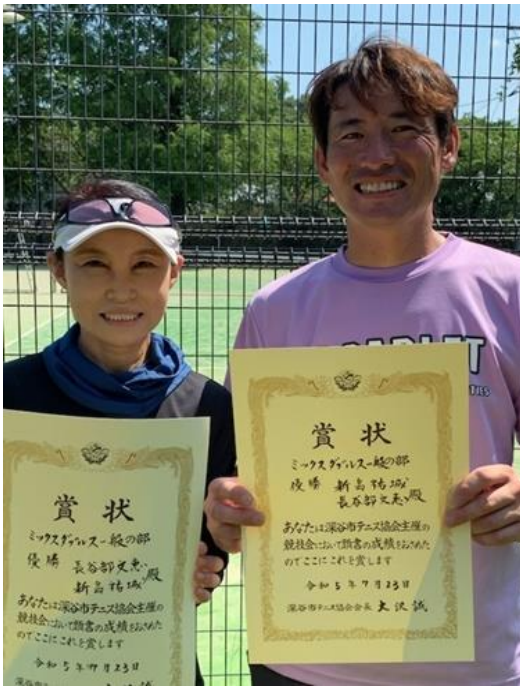 賞状
ミックスダブルス一般の部
優勝 長谷部文恵
新高祐城 殿
あなたは深谷市テニス協会主催の
競技会において頭書の成績をおさめた
のでここにこれを賞します
令和5年7月23日
賞状
ミックスダブルス一般の部
優勝 新高祐城
長谷部文恵 殿
あなたは深谷市テニス協会主催の
競技会において頭書の成績をおさめた
のでここにこれを賞します
令和5年7月23日
深谷市テニス協会会長 大沢誠